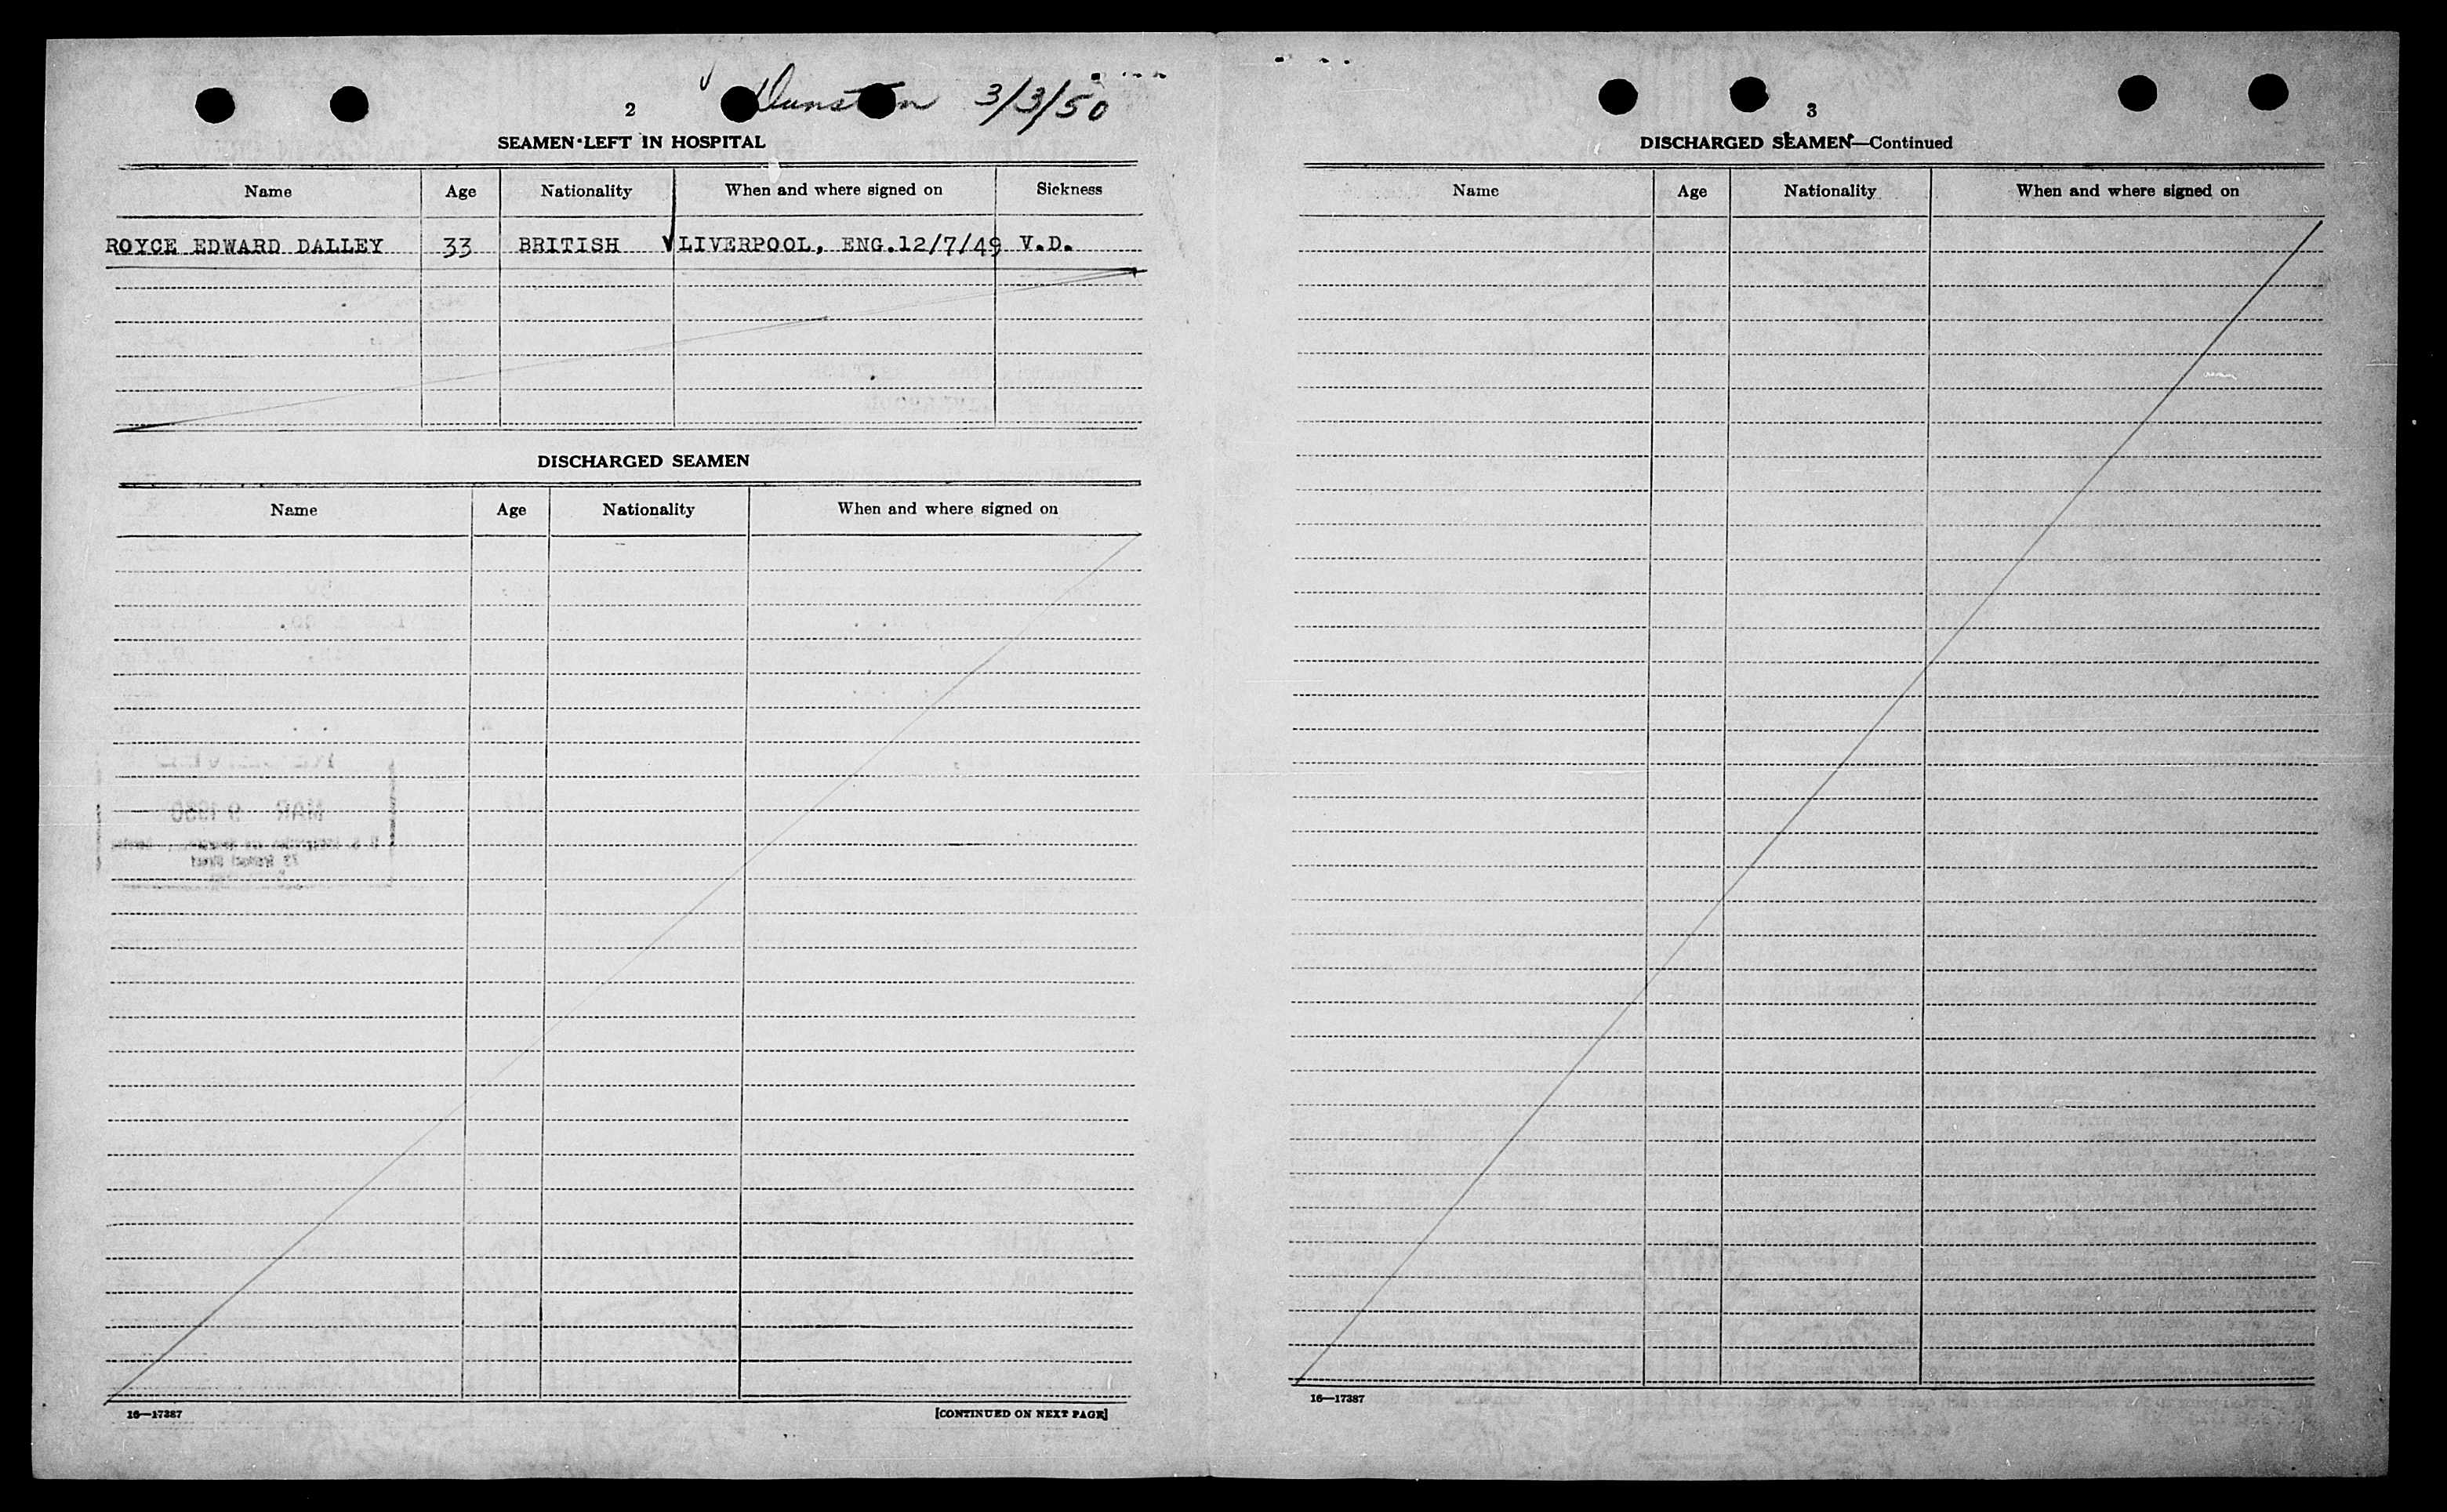 3/3/50
2
SEAMEN LEFT IN HOSPITAL
Name Age Nationality When and where signed on Sickness
ROYCE EDWARD DALLEY 33 BRITISH LIVERPOOL, ENG. 12/7/49 V.D.
DISCHARGED SEAMEN
Name Age Nationality When and where signed on
MAR 9 1950
16—17387 [CONTINUED ON NEXT PAGE]
3
DISCHARGED SEAMEN—Continued
Name Age Nationality When and where signed on
16—17387